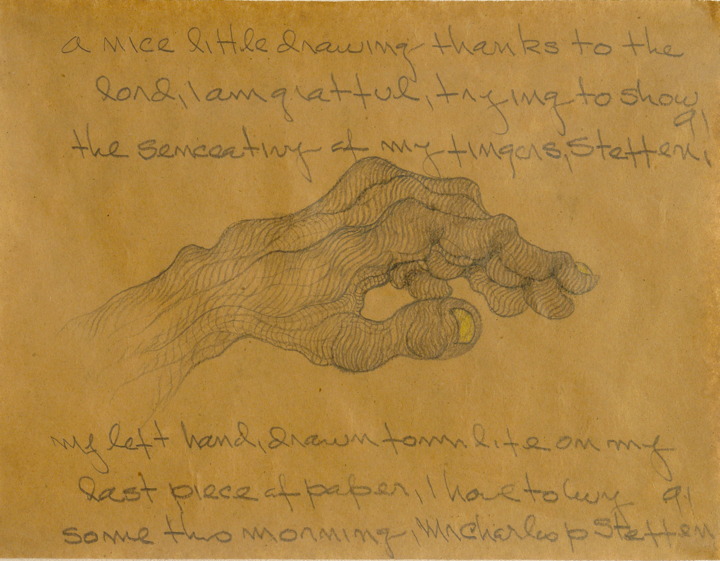 a nice little drawing thanks to the
lord, I am gratful, trying to show
91
the senceativy of my fingers, Steffen,
my left hand, drawn from life on my
last piece of paper, I have to buy 91
some this morning, Mr Charles p Steffen